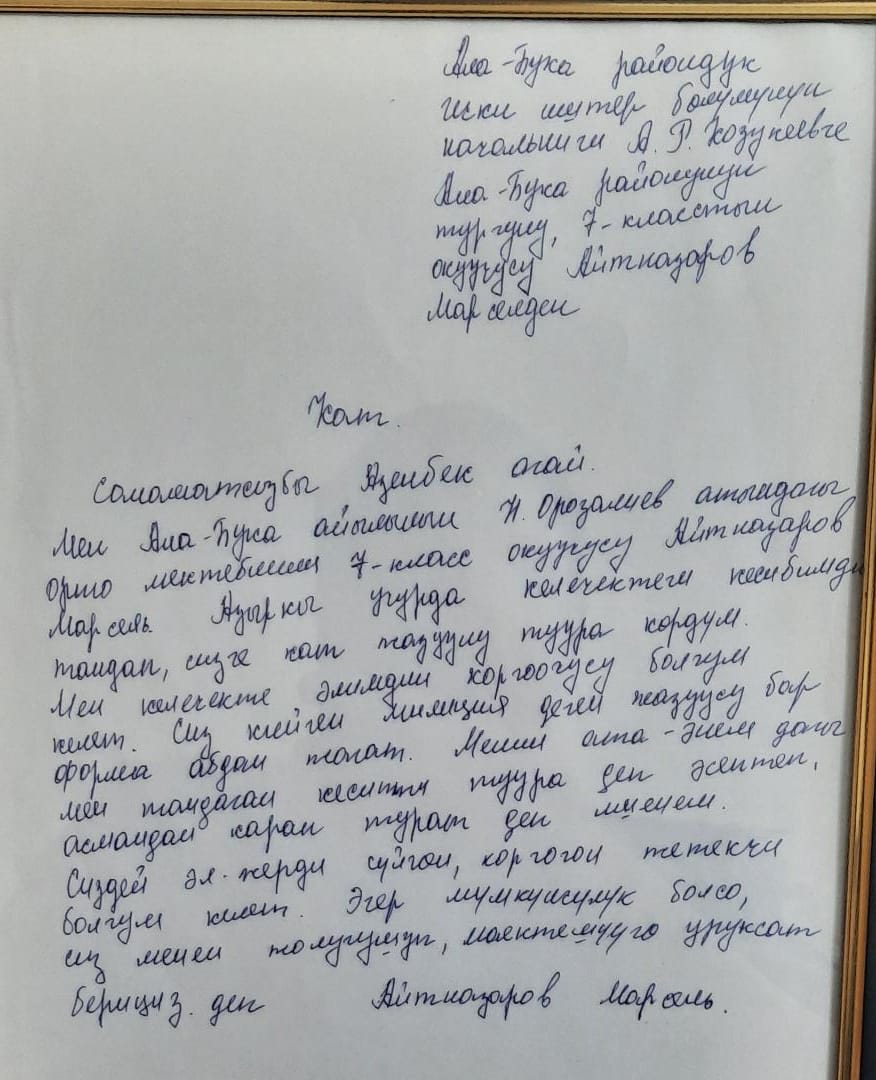 Ала-Бука райондук
ички иштер болумунун
начальниги А. Р. Козукеевге
Ала-Бука районунун
тургуну, 7-класстын
окуучусу Айтназаров
Марселден
Кат.
Саламатсызбы Азенбек агай.
Мен Ала-Бука айылынын Н. Орозалиев атындагы
орто мектебинин 7-класс окуучусу Айтназаров
Марсель. Азыркы учурда келечектеги кесибимди
тандап, сизге кат жазууну туура кордум.
Мен келечекте элимдин коргоочусу болгум
келет. Сиз кийген милиция деген жазуусу бар
форма абдан жагат. Менин ата-энем дагы
мен тандаган кесипти туура деп эсептеп,
асмандан карап турат деп ишенем.
Сиздей эл-жерди суйгон, коргогон жетекчи
болгум келет. Эгер мумкунчулук болсо,
сиз менен жолугушуп, маектешууго уруксат
берициз деп Айтназаров Марсель.